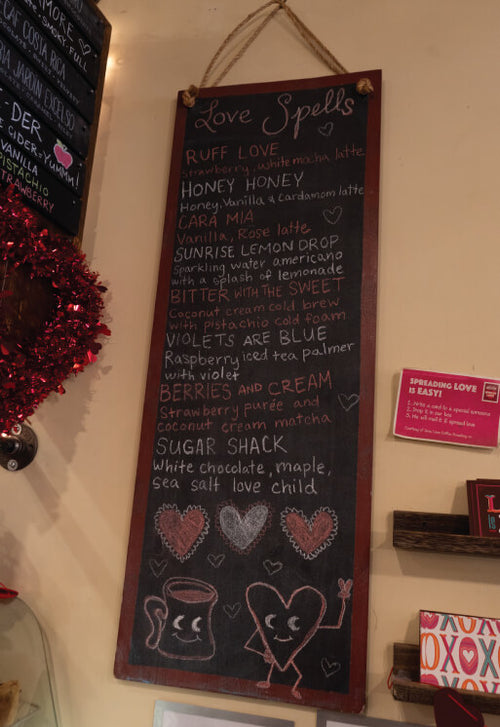 MORE ♡
SHORT, FULL
ECAF COSTA RICA
JARDIN EXCELSO
DER
CIDER=YUMMY!
VANILLA
PISTACHIO
STRAWBERRY
Love Spells
RUFF LOVE
Strawberry, white mocha latte
HONEY HONEY
Honey, Vanilla & Cardamom latte
CARA MIA
Vanilla, Rose latte
SUNRISE LEMON DROP
Sparkling water americano
with a splash of lemonade
BITTER WITH THE SWEET
Coconut cream cold brew
with pistachio cold foam
VIOLETS ARE BLUE
Raspberry iced tea palmer
with violet
BERRIES AND CREAM
Strawberry purée and
coconut cream matcha
SUGAR SHACK
White chocolate, maple,
sea salt love child
SPREADING LOVE
IS EASY!
1. Write a card to a special someone
2. Drop it in our box
3. We will mail it & spread love
XOXO